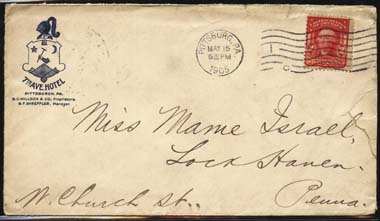 7TH AVE. HOTEL
PITTSBURGH, PA.
B.C. WILLSON & CO., Proprietors.
Manager.
PITTSBURG, PA.
MAY 15
6 PM
1905
1
Miss Mame Israel,
Lock Haven.
W. Church st..
Penna.